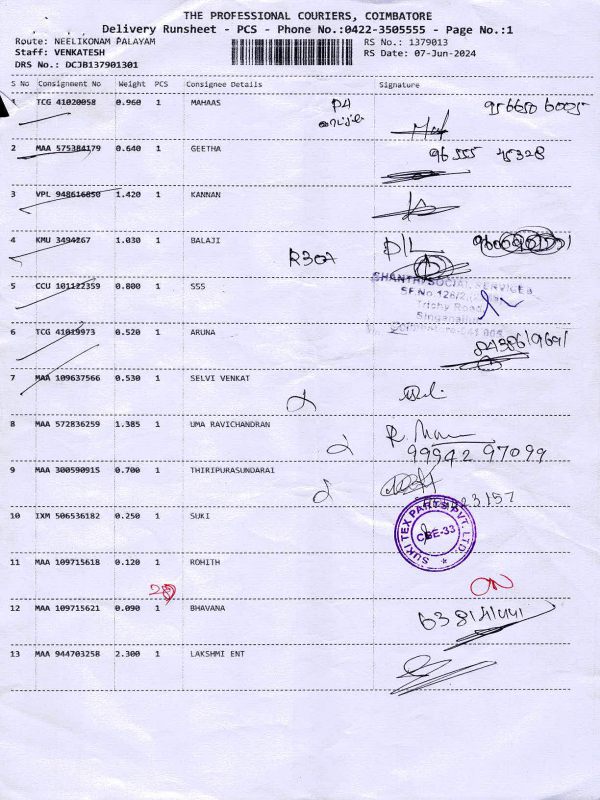 THE PROFESSIONAL COURIERS, COIMBATORE
Delivery Runsheet - PCS - Phone No.:0422-3505555 - Page No.:1
Route: NEELIKONAM PALAYAM RS No.: 1379013
Staff: VENKATESH RS Date: 07-Jun-2024
DRS No.: DCJB137901301
S No Consignment No Weight PCS Consignee Details Signature
1 TCG 41020058 0.960 1 MAHAAS
2 MAA 575384179 0.640 1 GEETHA
3 VPL 948616850 1.420 1 KANNAN
4 KMU 3494267 1.030 1 BALAJI D/L
R307
5 CCU 101122359 0.800 1 SSS
SHANTHI SOCIAL SERVICES
SF.No.126/2
Trichy Road
Singanallur
6 TCG 41019973 0.520 1 ARUNA
7 MAA 109637566 0.530 1 SELVI VENKAT
8 MAA 572836259 1.385 1 UMA RAVICHANDRAN
99942 97099
9 MAA 300590915 0.700 1 THIRIPURASUNDARAI
10 IXM 506536182 0.250 1 SUKI
SUKI TEX PARTS PVT. LTD.
CBE-33
11 MAA 109715618 0.120 1 ROHITH
12 MAA 109715621 0.090 1 BHAVANA
13 MAA 944703258 2.300 1 LAKSHMI ENT